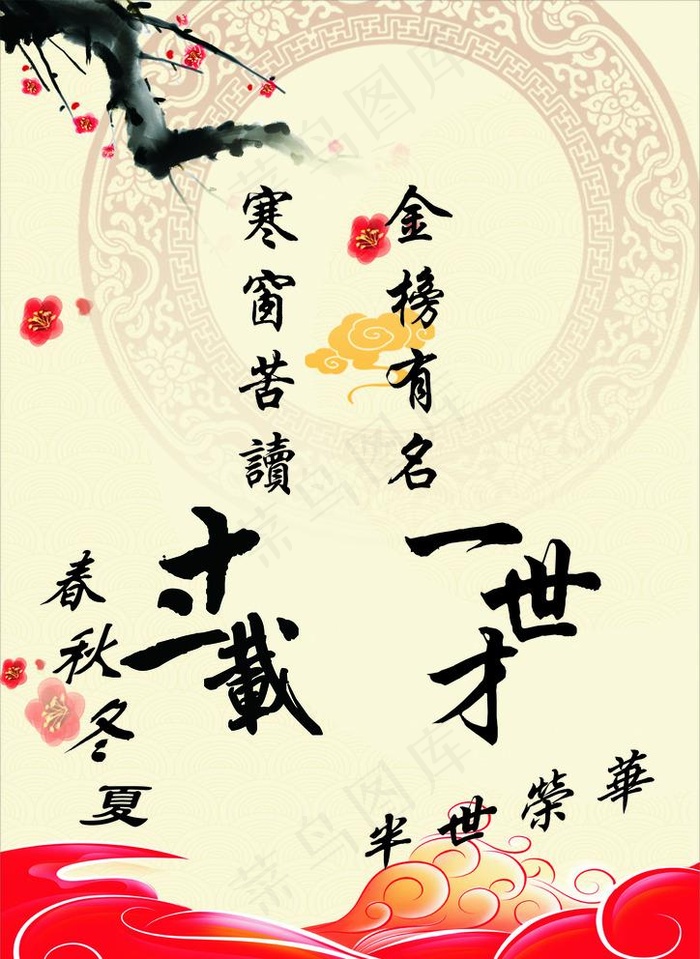 寒窗苦讀
十二載
春秋冬夏
金榜有名
一世才
半世榮華
菜鸟图库